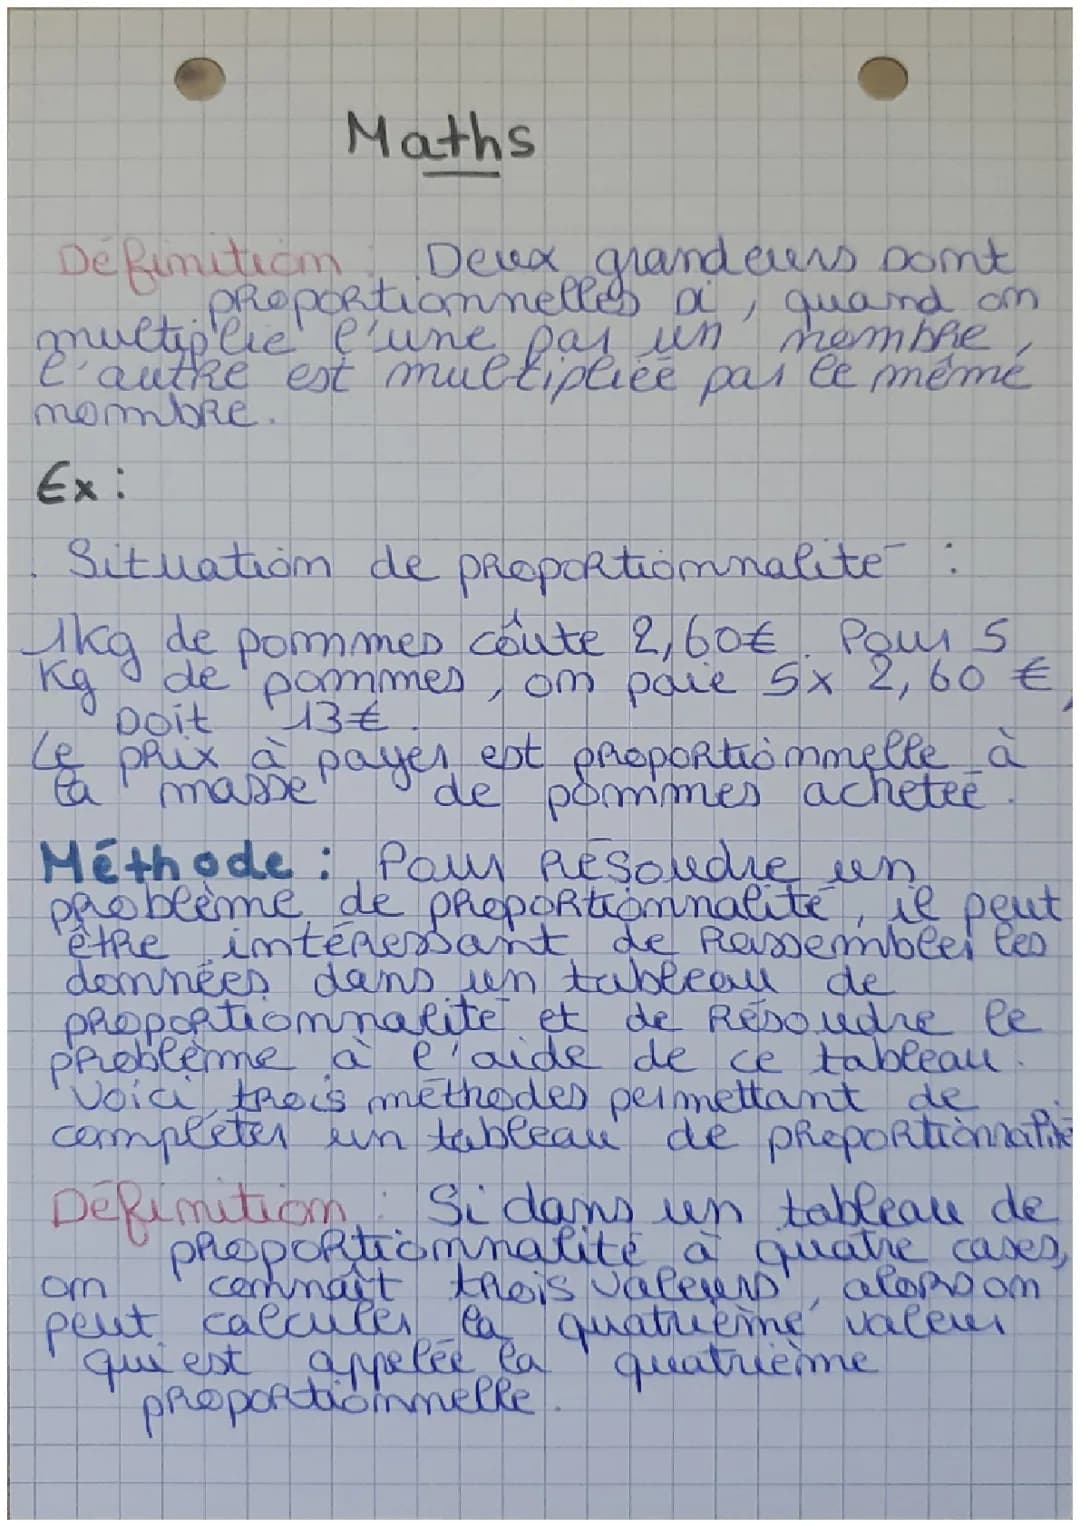 Maths
Définition : Deux grandeurs sont
proportionnelles si, quand on
multiplie l'une par un nombre,
l'autre est multipliée par le même
nombre.
Ex :
. Situation de proportionnalité :
1kg de pommes coûte 2,60€. Pour 5
Kg de pommes, on paie 5x 2,60 €,
soit 13€.
Le prix à payer est proportionnelle à
la masse de pommes achetée.
Méthode : Pour résoudre un
problème de proportionnalité, il peut
être intéressant de rassembler les
données dans un tableau de
proportionnalité et de résoudre le
problème à l'aide de ce tableau.
Voici trois méthodes permettant de
compléter un tableau de proportionnalité
Définition : Si dans un tableau de
proportionnalité à quatre cases,
on connaît trois valeurs, alors on
peut calculer la quatrième valeur
qui est appelée la quatrième
proportionnelle.